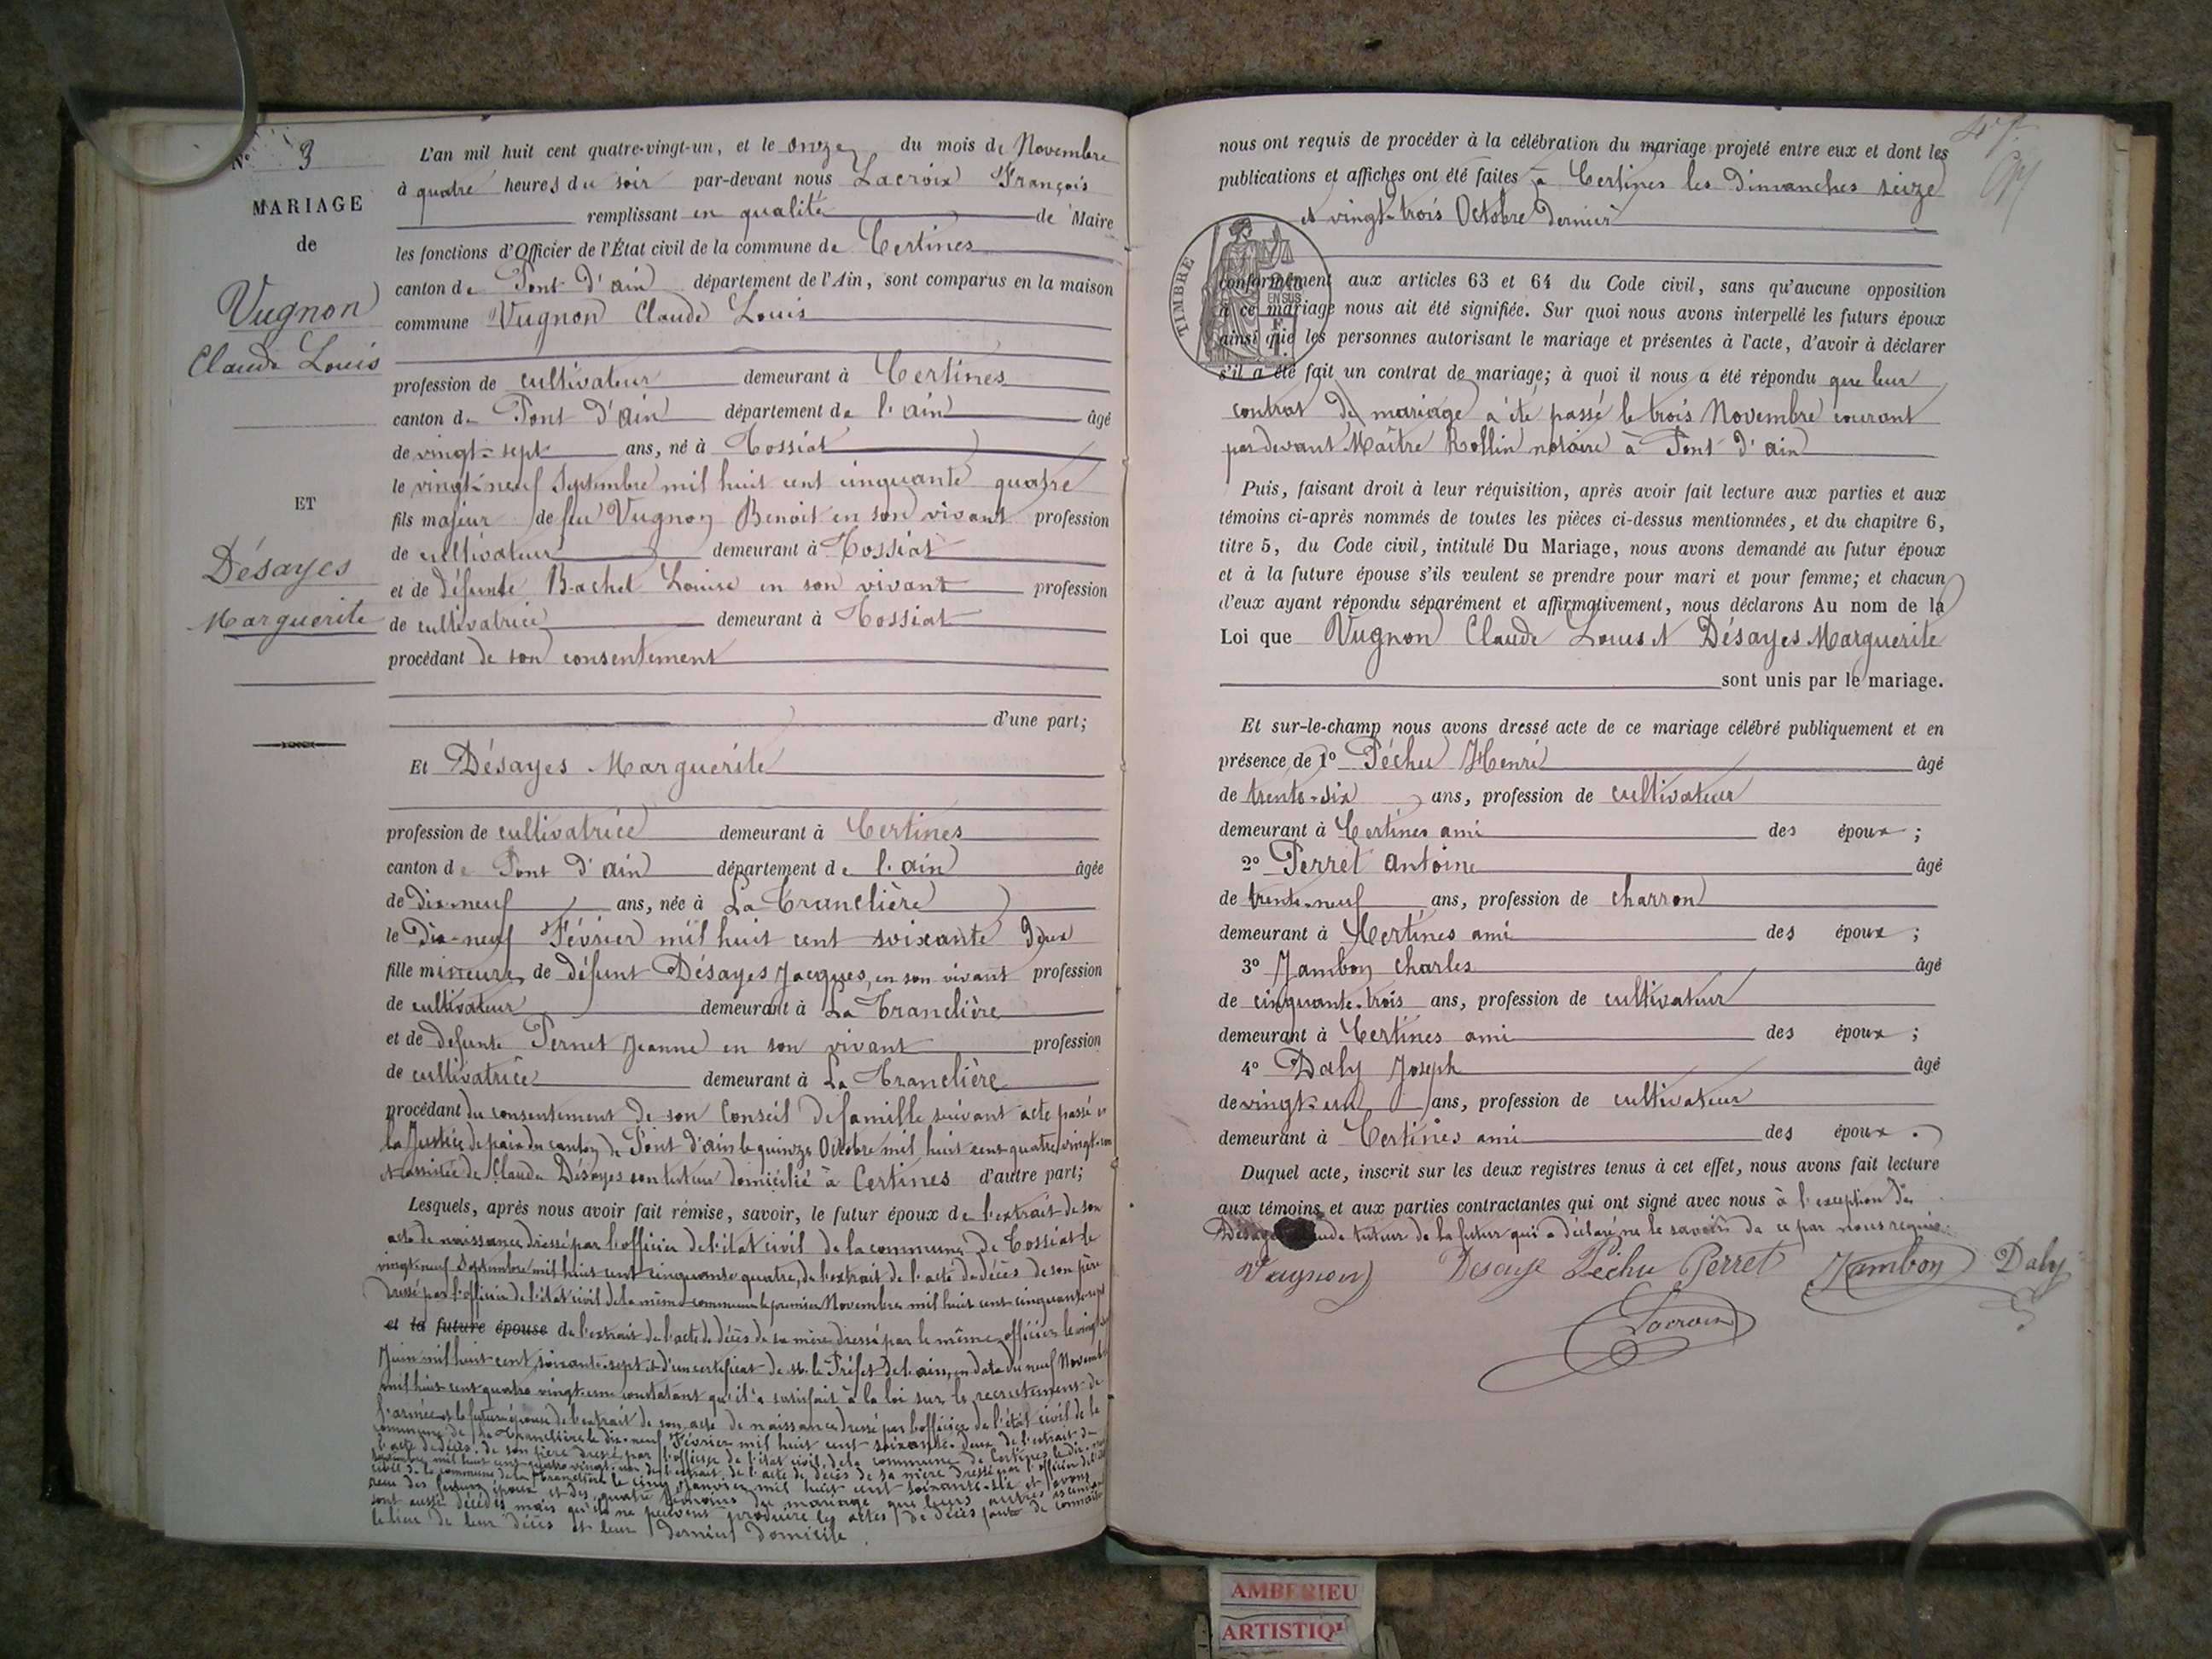 N° 3
MARIAGE
de
Vugnon
Claude Louis
ET
Désayes
Marguerite
L'an mil huit cent quatre-vingt-un, et le onze du mois de Novembre
à quatre heures du soir par-devant nous Lacroix François
remplissant en qualité de Maire
les fonctions d'Officier de l'État civil de la commune de Certines
canton de Pont d'ain département de l'Ain, sont comparus en la maison
commune Vugnon Claude Louis
profession de cultivateur demeurant à Certines
canton de Pont d'ain département de l'ain âgé
de vingt-sept ans, né à Tossiat
le vingt-neuf Septembre mil huit cent cinquante quatre
fils majeur de feu Vugnon Benoit en son vivant profession
de cultivateur demeurant à Tossiat
et de défunte Bachet Louise en son vivant profession
de cultivatrice demeurant à Tossiat
procédant de son consentement
d'une part;
Et Désayes Marguerite
profession de cultivatrice demeurant à Certines
canton de Pont d'ain département de l'ain âgée
de dix-neuf ans, née à La Tranclière
le Dix-neuf Février mil huit cent soixante deux
fille mineure de défunt Désayes Jacques, en son vivant profession
de cultivateur demeurant à La Tranclière
et de defunte Pernet Jeanne en son vivant profession
de cultivatrice demeurant à La Tranclière
procédant du consentement de son Conseil de famille suivant acte passé
la Justice de paix du canton de Pont d'ain le quinze Octobre mil huit cent quatre vingt-un
et assistée de Claude Désayes son tuteur domicilié à Certines d'autre part;
Lesquels, après nous avoir fait remise, savoir, le futur époux de l'extrait de son
acte de naissance dressé par l'officier de l'état civil de la commune de Tossiat le
vingt-neuf Septembre mil huit cent cinquante quatre, de l'extrait de l'acte de décès de son père
dressé par l'officier de l'état civil de la même commune le premier Novembre mil huit cent cinquante-sept
et la future épouse de l'extrait de l'acte de décès de sa mère dressé par le même officier le vingt
Juin mil huit cent soixante-sept et d'un certificat de M. le Préfet de l'ain, en date du neuf Novembre
mil huit cent quatre vingt-un constatant qu'il a satisfait à la loi sur le recrutement de
l'armée et la future épouse de l'extrait de son acte de naissance dressé par l'officier de l'état civil de la
commune de la Tranclière le dix-neuf Février mil huit cent soixante-deux de l'extrait de
l'acte de décès de son père dressé par l'officier de l'état civil de la commune de Certines le dix
mil huit cent quatre vingt-un de l'extrait de l'acte de décès de sa mère dressé par l'officier de l'état
civil de la commune de la Tranclière le cinq Janvier mil huit cent soixante-six et avons
des futurs époux et des quatre témoins du mariage que leurs autres ascendants
sont aussi décédés mais qu'ils ne peuvent produire les actes de décès faute de connaître
le lieu de leur décès et leur dernier domicile
nous ont requis de procéder à la célébration du mariage projeté entre eux et dont les
publications et affiches ont été faites à Certines les Dimanches seize
et vingt-trois Octobre dernier
TIMBRE
EN SUS
conformément aux articles 63 et 64 du Code civil, sans qu'aucune opposition
à ce mariage nous ait été signifiée. Sur quoi nous avons interpellé les futurs époux
ainsi que les personnes autorisant le mariage et présentes à l'acte, d'avoir à déclarer
s'il a été fait un contrat de mariage; à quoi il nous a été répondu que leur
contrat de mariage a été passé le trois Novembre courant
par devant Maître Rollin notaire à Pont d'ain
Puis, faisant droit à leur réquisition, après avoir fait lecture aux parties et aux
témoins ci-après nommés de toutes les pièces ci-dessus mentionnées, et du chapitre 6,
titre 5, du Code civil, intitulé Du Mariage, nous avons demandé au futur époux
et à la future épouse s'ils veulent se prendre pour mari et pour femme; et chacun
d'eux ayant répondu séparément et affirmativement, nous déclarons Au nom de la
Loi que Vugnon Claude Louis et Désayes Marguerite
sont unis par le mariage.
Et sur-le-champ nous avons dressé acte de ce mariage célébré publiquement et en
présence de 1° Péchu Henri âgé
de trente-six ans, profession de cultivateur
demeurant à Certines ami des époux;
2° Perret antoine âgé
de trente-neuf ans, profession de charron
demeurant à Certines ami des époux;
3° Jambon Charles âgé
de cinquante-trois ans, profession de cultivateur
demeurant à Certines ami des époux;
4° Daly Joseph âgé
de vingt-un ans, profession de cultivateur
demeurant à Certines ami des époux.
Duquel acte, inscrit sur les deux registres tenus à cet effet, nous avons fait lecture
aux témoins et aux parties contractantes qui ont signé avec nous à l'exception de
tuteur de la futur qui a déclaré ne le savoir de ce par nous requis
Vugnon Desaye Péchu Perret Jambon Daly
Lacroix
AMBERIEU
ARTISTIQ